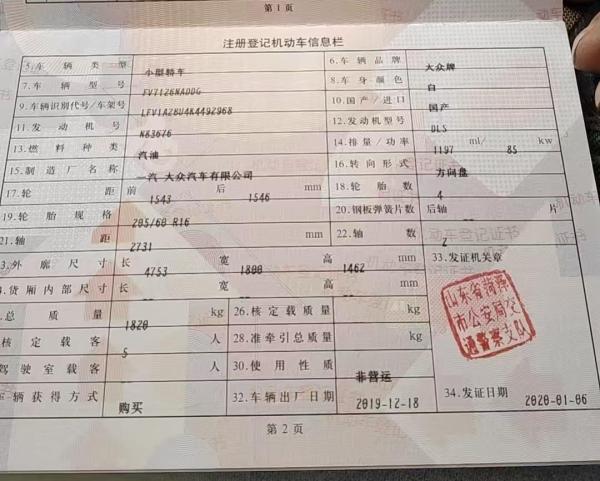 第1页
注册登记机动车信息栏
5.车辆类型 小型轿车 6.车辆品牌 大众牌
7.车辆型号 FV7126NADDG 8.车身颜色 白
9.车辆识别代号/车架号 LFV1A2BU4K4492968 10.国产/进口 国产
11.发动机号 N83676 12.发动机型号 DLS
13.燃料种类 汽油 14.排量/功率 1197 ml/ 85 kw
15.制造厂名称 一汽-大众汽车有限公司 16.转向形式 方向盘
17.轮距 前 1543 后 1546 mm 18.轮胎数 4
19.轮胎规格 205/60 R16 20.钢板弹簧片数 后轴 -- 片
21.轴距 2731 mm 22.轴数 2
3.外廓尺寸 长 4753 宽 1800 高 1462 mm 33.发证机关章
4.货厢内部尺寸 长 -- 宽 -- 高 -- mm
总质量 1820 kg 26.核定载质量 -- kg
核定载客 5 人 28.准牵引总质量 -- kg
驾驶室载客 -- 人 30.使用性质 非营运
车辆获得方式 购买 32.车辆出厂日期 2019-12-18 34.发证日期 2020-01-06
山东省菏泽
市公安局交
通警察支队
第2页